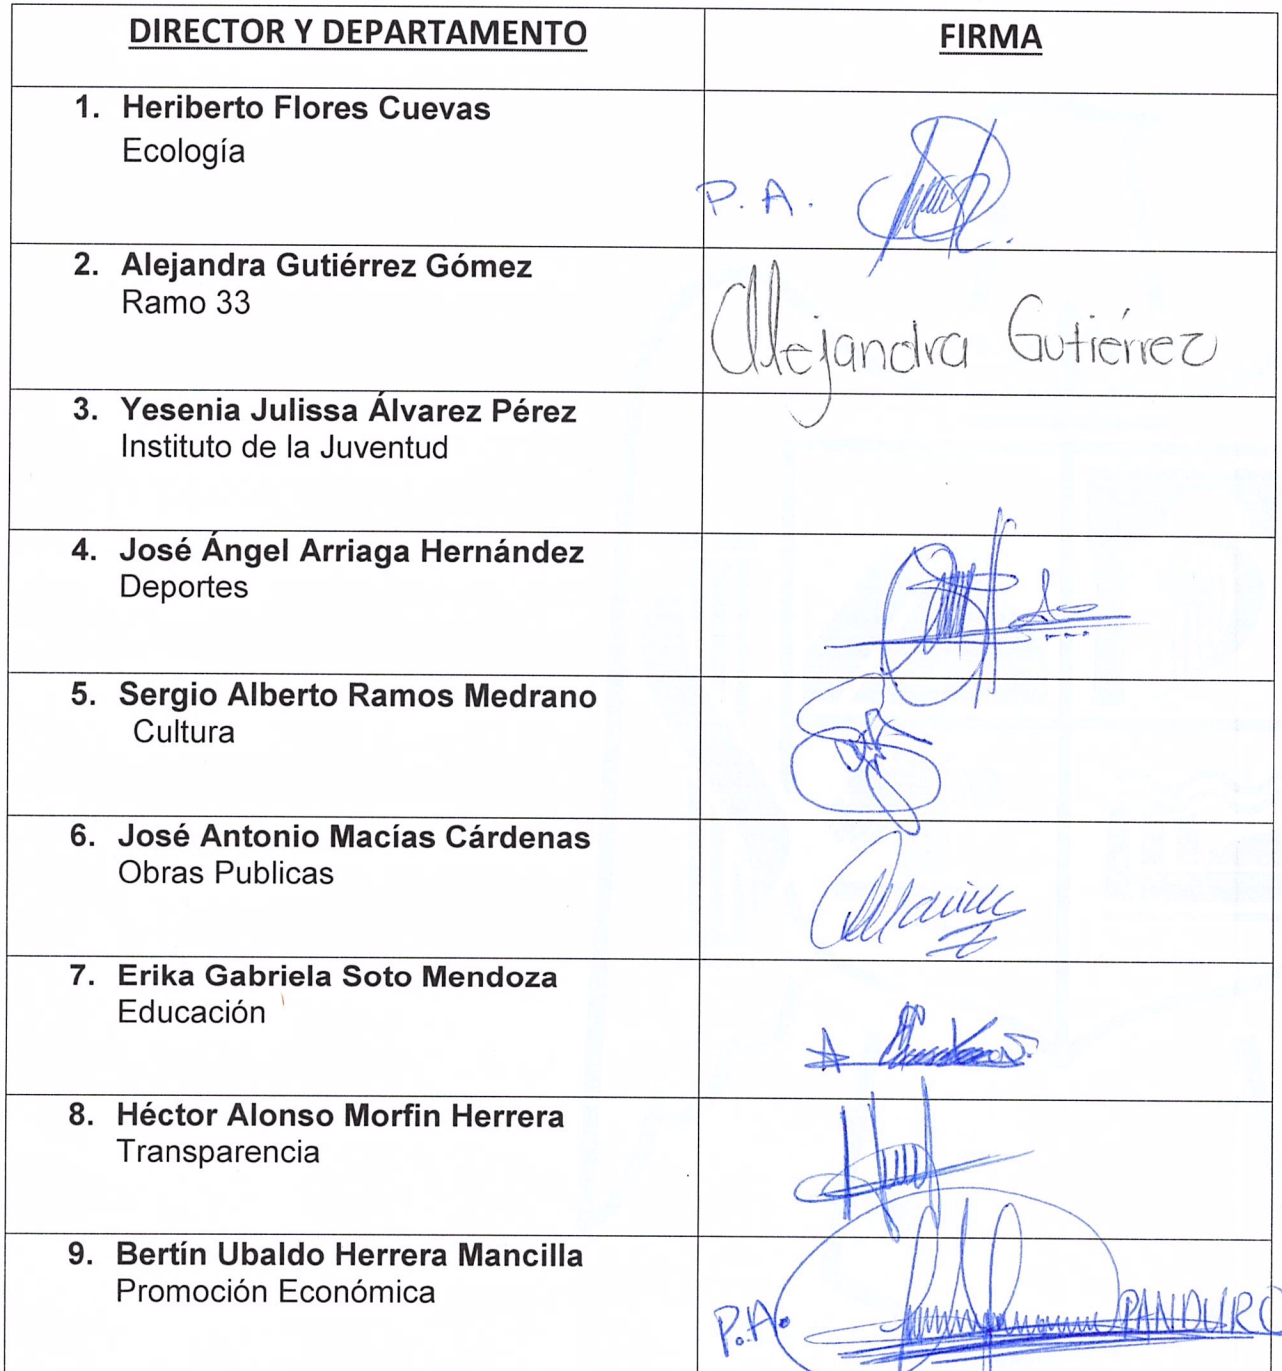 DIRECTOR Y DEPARTAMENTO
FIRMA
1. Heriberto Flores Cuevas
Ecología
P.A.
2. Alejandra Gutiérrez Gómez
Ramo 33
Alejandra Gutiérrez
3. Yesenia Julissa Álvarez Pérez
Instituto de la Juventud
4. José Ángel Arriaga Hernández
Deportes
5. Sergio Alberto Ramos Medrano
Cultura
6. José Antonio Macías Cárdenas
Obras Publicas
7. Erika Gabriela Soto Mendoza
Educación
8. Héctor Alonso Morfin Herrera
Transparencia
9. Bertín Ubaldo Herrera Mancilla
Promoción Económica
P.A. PANDURO